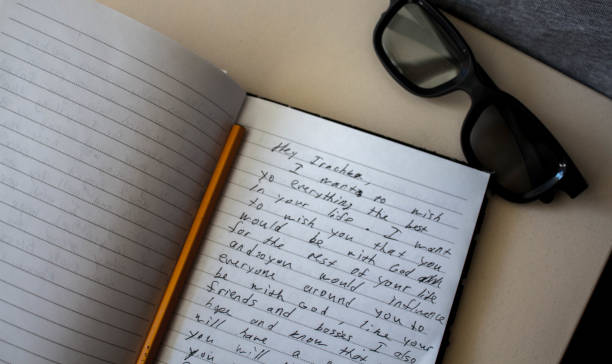 Hey Irachka,
I want to wish
yo everything the best
in your life. I want
to wish you that you
would be with God
for the rest of your life
and so you would influence
everyone around you to
be with God, like your
friends and bosses. I also
hope and know that
will have a
you will